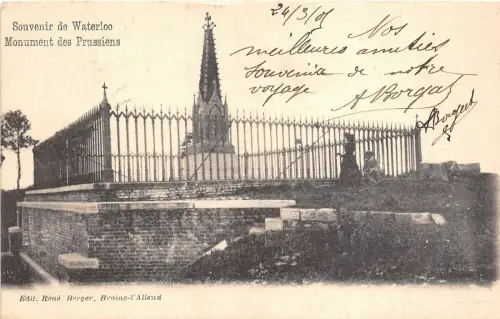 Souvenir de Waterloo
Monument des Prussiens
24/3/05
Nos
meilleures amitiés
Souvenir de notre
voyage
A Borgat
Edit. René Berger, Braine-l'Alleud